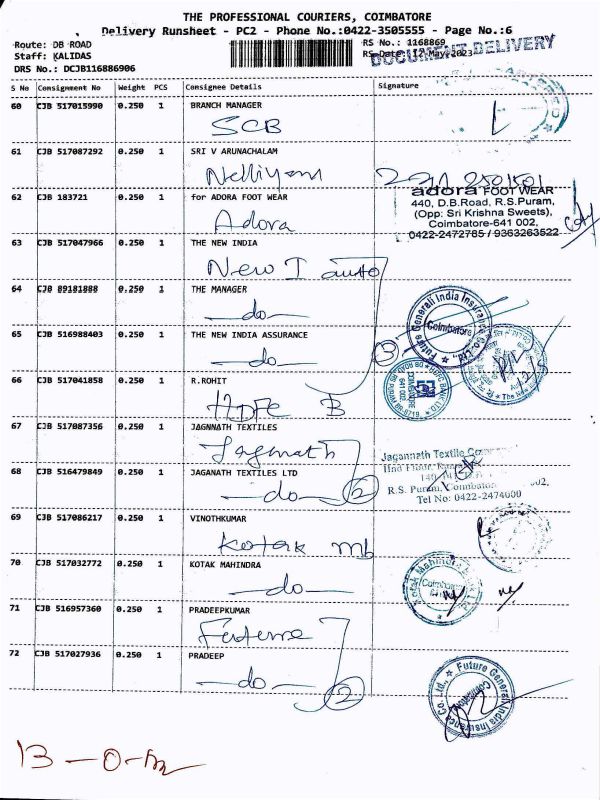 THE PROFESSIONAL COURIERS, COIMBATORE
Delivery Runsheet - PC2 - Phone No.:0422-3505555 - Page No.:6
Route: DB ROAD
Staff: KALIDAS
DRS No.: DCJB116886906
RS No.: 1168869
RS Date: 12-May-2023
DOCUMENT DELIVERY
S No Consignment No Weight PCS Consignee Details Signature
60 CJB 517015990 0.250 1 BRANCH MANAGER
SCB
61 CJB 517087292 0.250 1 SRI V ARUNACHALAM
62 CJB 183721 0.250 1 for ADORA FOOT WEAR
Adora
adora FOOT WEAR
440, D.B.Road, R.S.Puram,
(Opp: Sri Krishna Sweets),
Coimbatore-641 002,
0422-2472785 / 9363263522
63 CJB 517047966 0.250 1 THE NEW INDIA
New I auto
64 CJB 89181888 0.250 1 THE MANAGER
do
Future Generali India Insurance Co. Ltd.,
Coimbatore
65 CJB 516988403 0.250 1 THE NEW INDIA ASSURANCE
do
3
66 CJB 517041858 0.250 1 R.ROHIT
HDFC B
HDFC BANK LTD.
COIMBATORE
641 002
67 CJB 517087356 0.250 1 JAGNNATH TEXTILES
Jagannath
Jagannath Textile
R.S. Puram, Coimbatore
Tel No: 0422-2474000
68 CJB 516479849 0.250 1 JAGANATH TEXTILES LTD
do 2
69 CJB 517086217 0.250 1 VINOTHKUMAR
Kotak mb
70 CJB 517032772 0.250 1 KOTAK MAHINDRA
do
Kotak Mahindra
Coimbatore
71 CJB 516957360 0.250 1 PRADEEPKUMAR
72 CJB 517027936 0.250 1 PRADEEP
do 2
Future Generali India Insurance Co. Ltd.,
Coimbatore